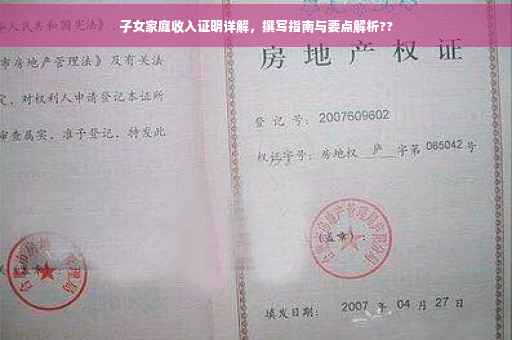 子女家庭收入证明详解，撰写指南与要点解析??
人民共和国宪法》、
市房地产管理法》及有关法
定，对权利人申请登记本证所
审查属实，准予登记，特发此
房地产权证
登记号：2007609602
权证字号：房地权 庐 字第 085042 号
（盖章）：
填发日期：2007 年 04 月 27 日